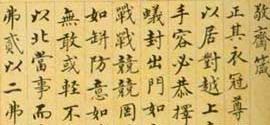 敬齋箴
正其衣冠尊
以居對越上
手容必恭擇
蟻封出門如
戰戰兢兢罔
如缾防意如
無敢或輕不
以北當事而
弗貳以二弗